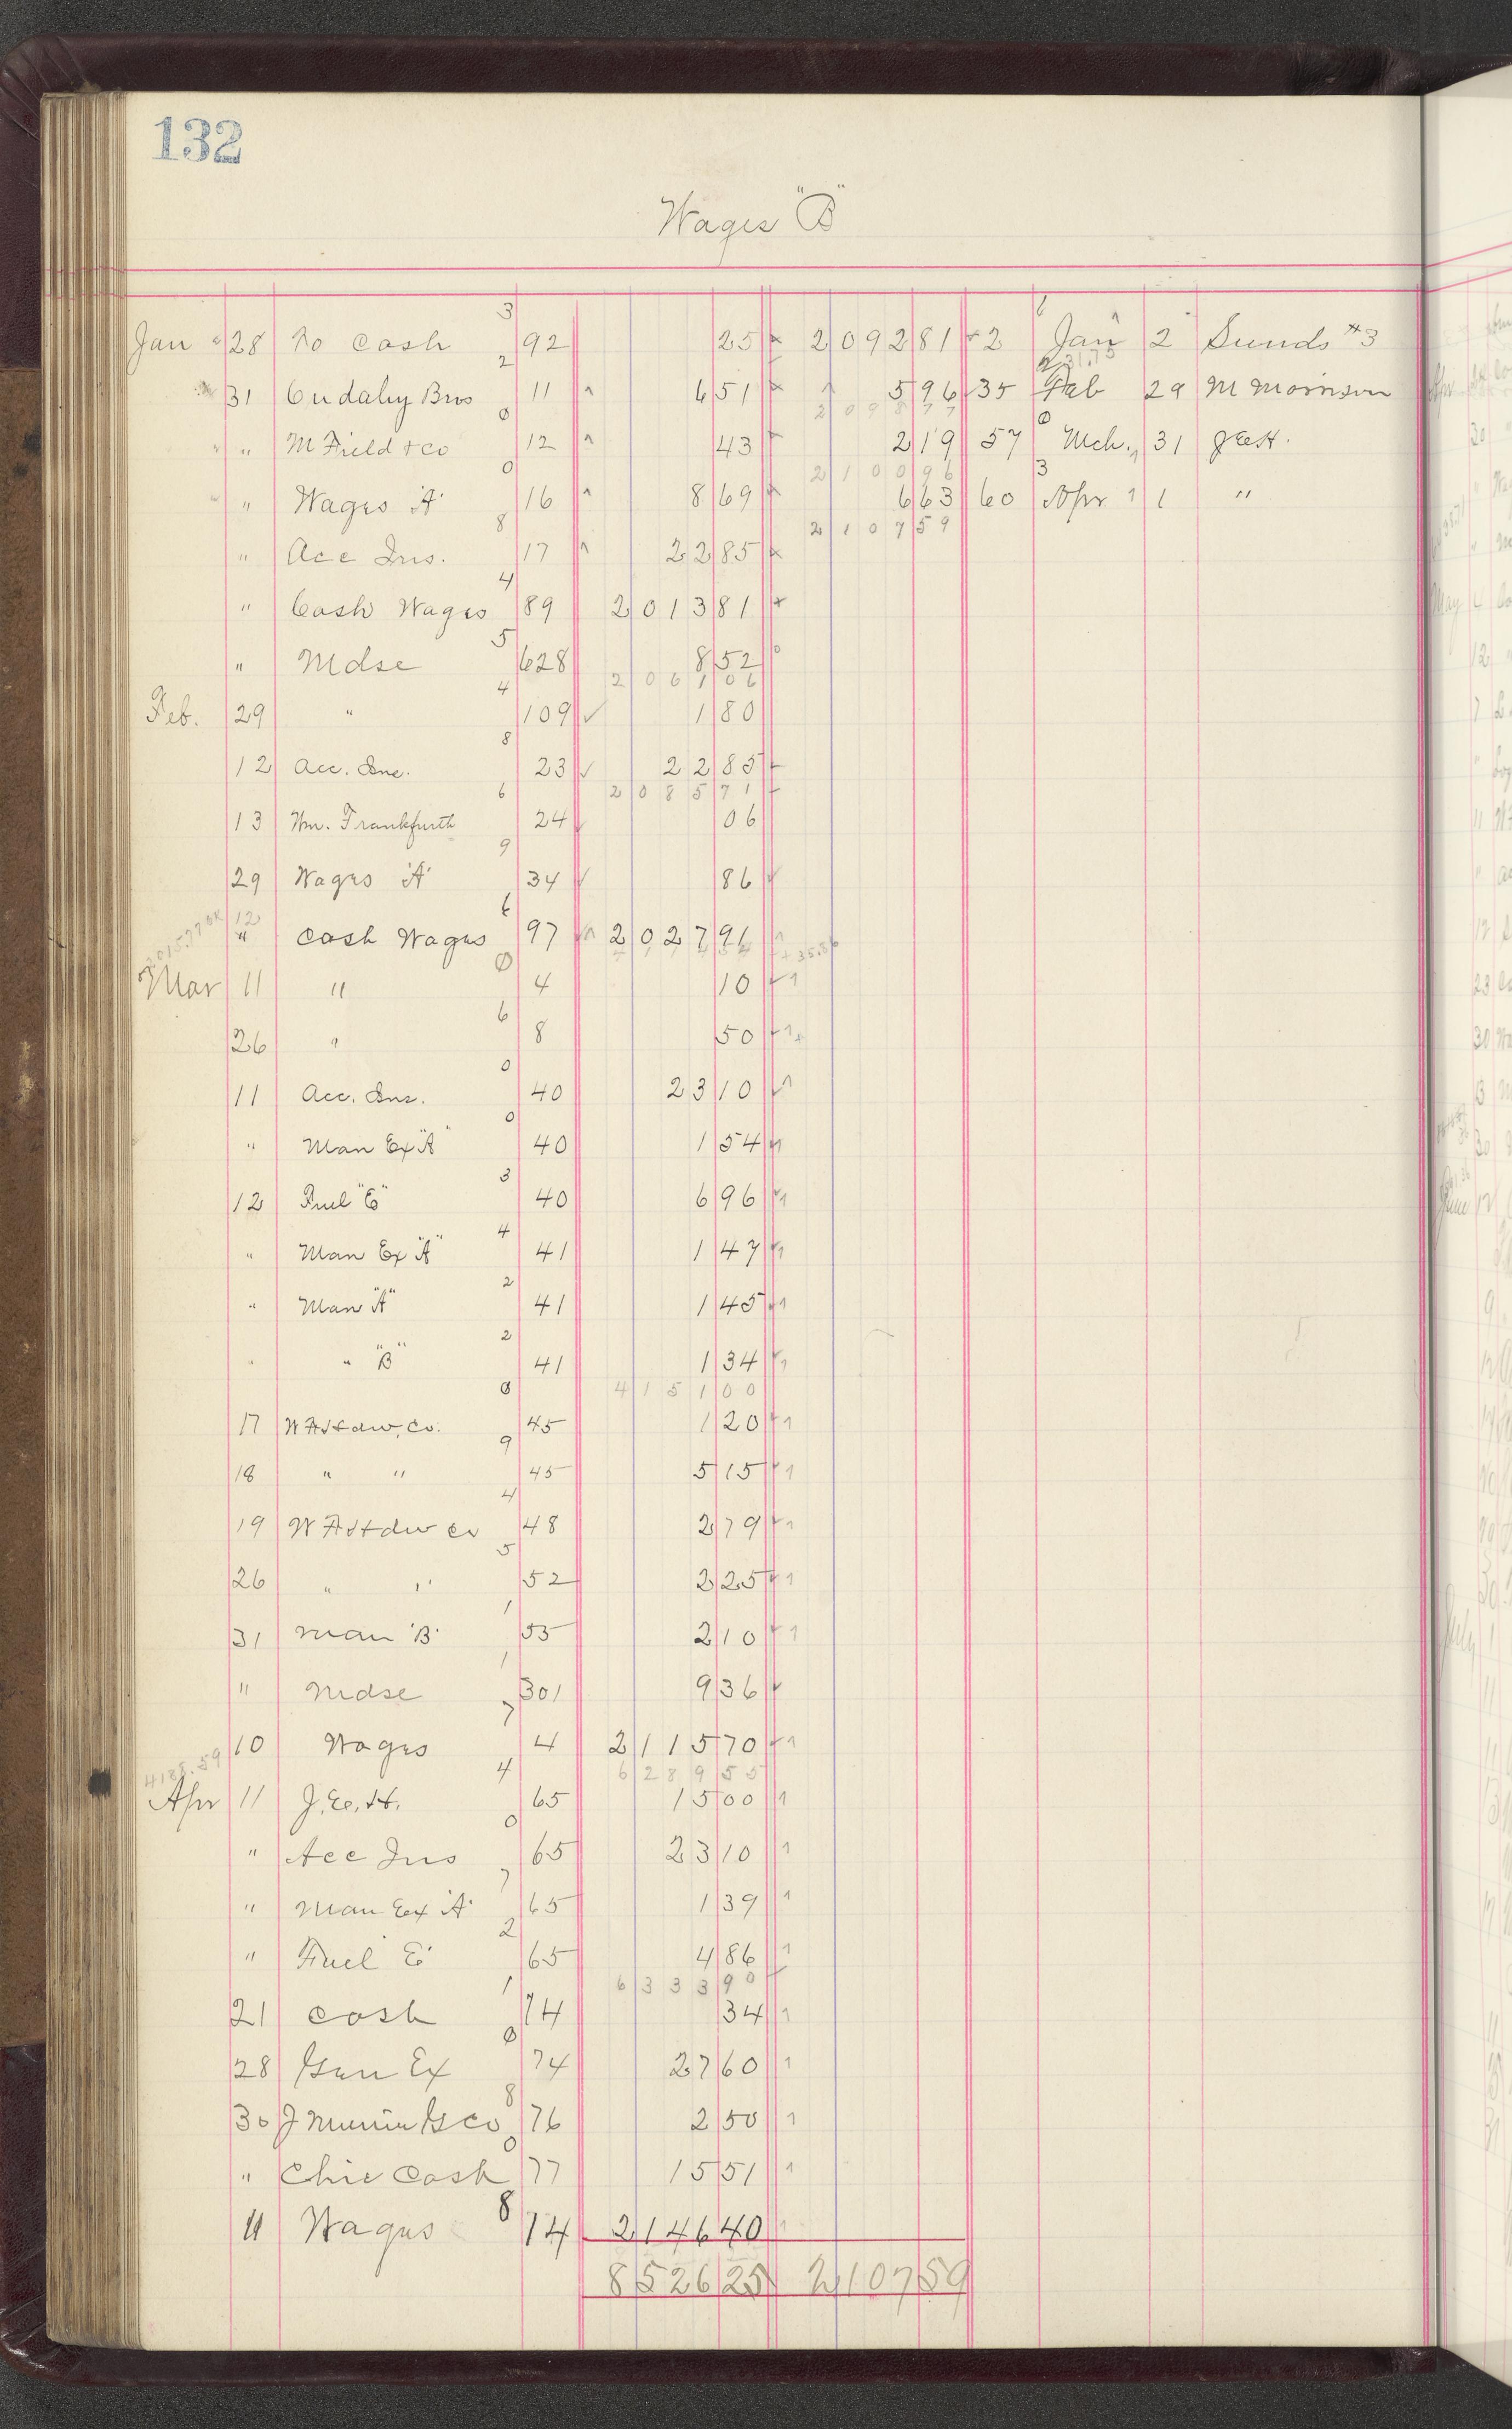 132
Wages "B"
3
Jan 28 To Cash 92 25 2092 81 2 Jan 2 Sunds #3
2 31.75
31 Cudahy Bros 11 6 51 5 96 35 Feb 29 M Morrison
0 2098 77 0
" M Field & Co 12 43 2 19 57 Mch. 31 JEH.
0 2100 96 3
" Wages "A" 16 8 69 6 63 60 Apr 1 "
8 2107 59
" Acc Ins. 17 22 85
4
" Cash Wages 89 2013 81
5
" Mdse 628 8 52
4 2061 06
Feb. 29 " 109 1 80
8
12 Acc. Ins. 23 22 85
6 2085 71
13 Wm. Frankfurth 24 06
9
29 Wages "A" 34 86
6
12
" Cash Wages 97 2027 91
0 + 35.86
Mar 11 " 4 10
6
26 " 8 50
0
11 Acc. Ins. 40 23 10
0
" Man Ex "A" 40 1 54
3
12 Fuel "E" 40 6 96
4
" Man Ex "A" 41 1 47
2
" Man "A" 41 1 45
2
" " "B" 41 1 34
0 4151 00
17 Co. 45 1 20
9
18 " " 45 5 15
4
19 Co 48 2 79
5
26 " " 52 2 25
1
31 Man "B" 55 2 10
1
" Mdse 301 9 36
7
10 Wages 4 2115 70
4188.59 4 6289 55
Apr 11 J.E.H. 65 15 00
0
" Acc Ins 65 23 10
7
" Man Ex "A" 65 1 39
2
" Fuel "E" 65 4 86
1 6333 90
21 Cash 74 34
0
28 Gen Ex 74 27 60
8
30 J Co 76 2 50
0
" Chic Cash 77 15 51
8
11 Wages 14 2146 40
8526 25 2107 59